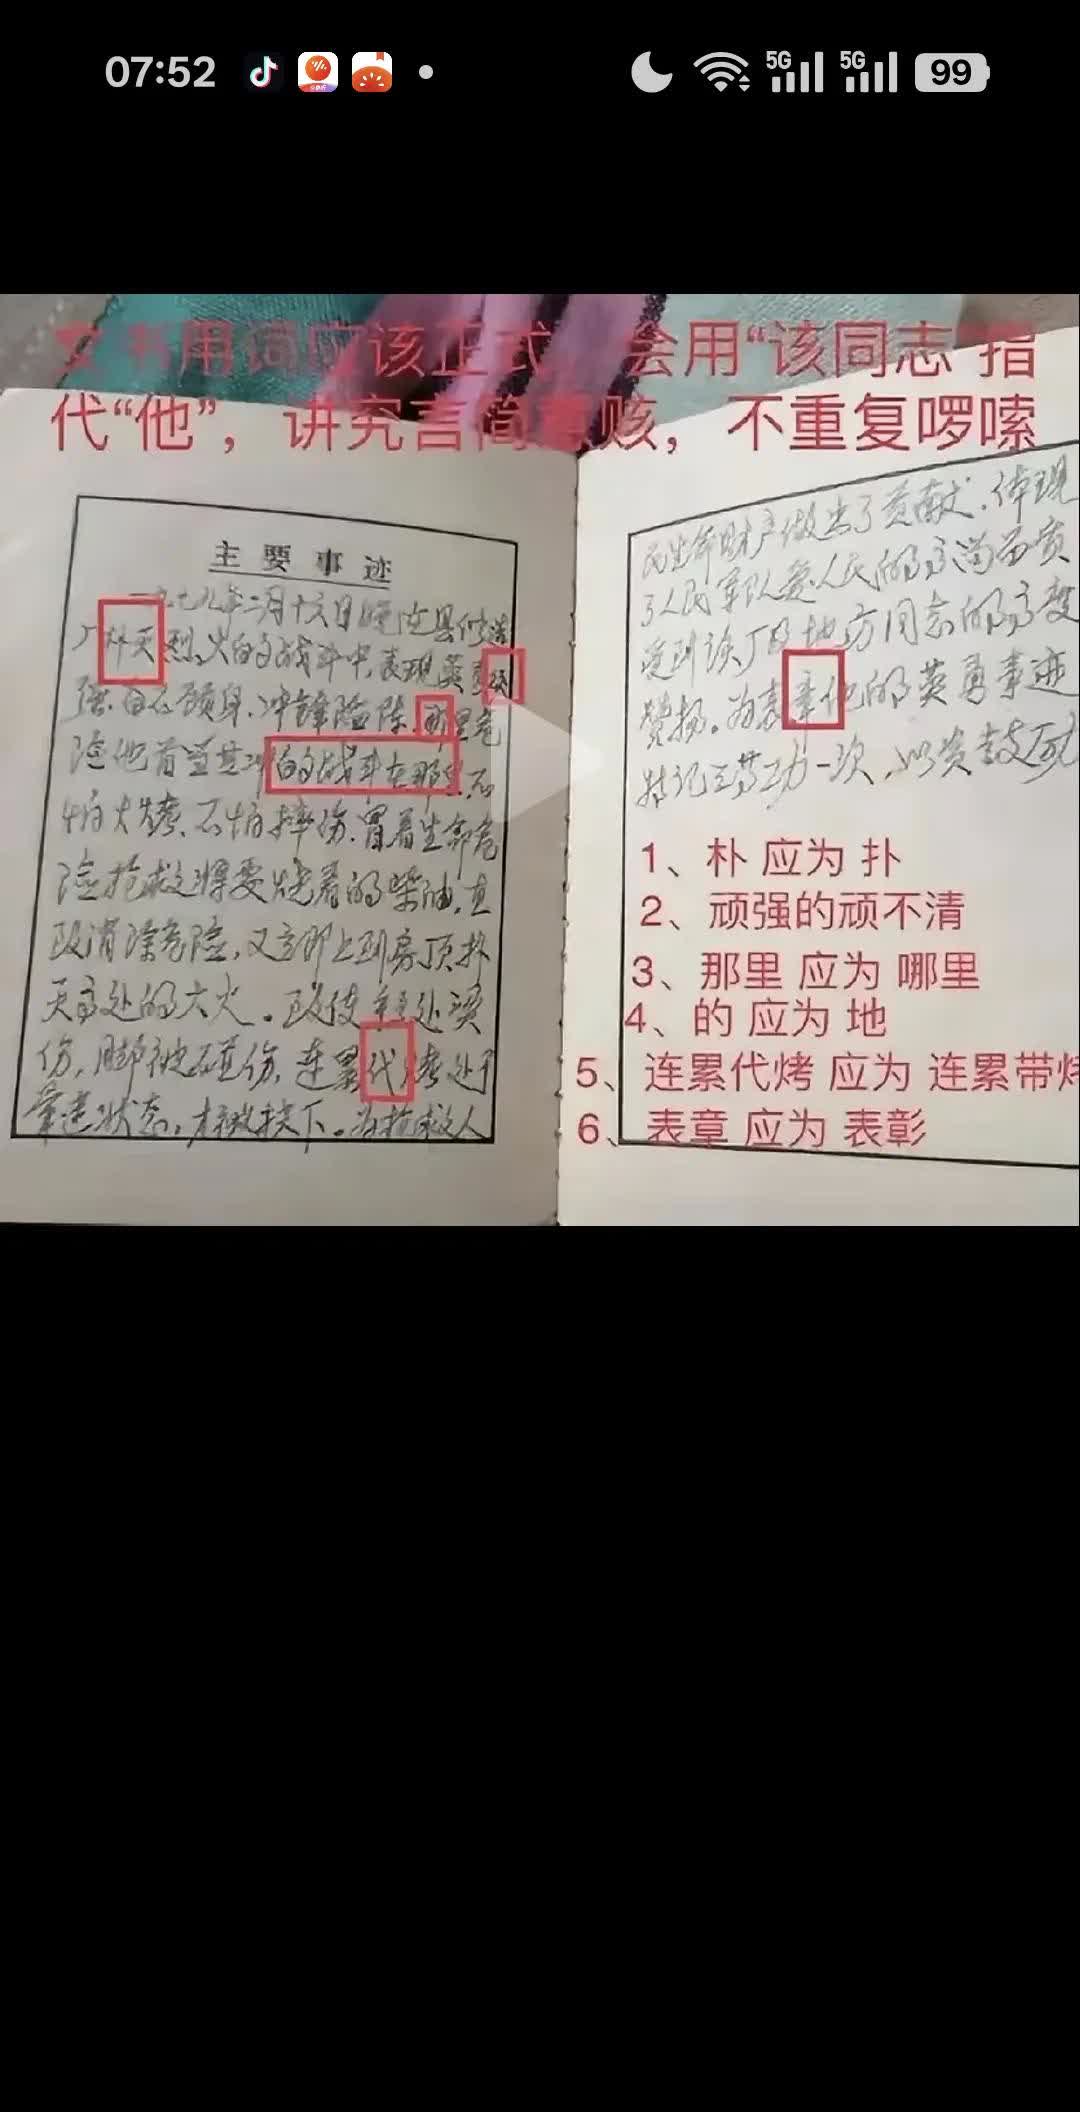 07:52
5G 5G 99
文书用词应该正式，会用“该同志”指
代“他”，讲究言简意赅，不重复啰嗦
主要事迹
一九七九年二月十六日
广朴灭烈火的战斗中，表现英勇顽
强，奋不顾身，冲锋陷阵，那里危
险他首当其冲的战斗在那里，不
怕火烤、不怕摔伤，冒着生命危
险抢救将要烧着的柴油，直
消除危险，又立即上到房顶扑
灭高处的大火。
伤，脚被碰伤，连累代烤处于
状态，才被扶下。为抢救人
民生命财产做出了贡献，体现
了人民军队爱人民的高尚品质
受到该厂及地方同志的高度
赞扬。为表章他的英勇事迹
特记三等功一次，以资鼓励
1、朴 应为 扑
2、顽强的顽不清
3、那里 应为 哪里
4、的 应为 地
5、连累代烤 应为 连累带烤
6、表章 应为 表彰